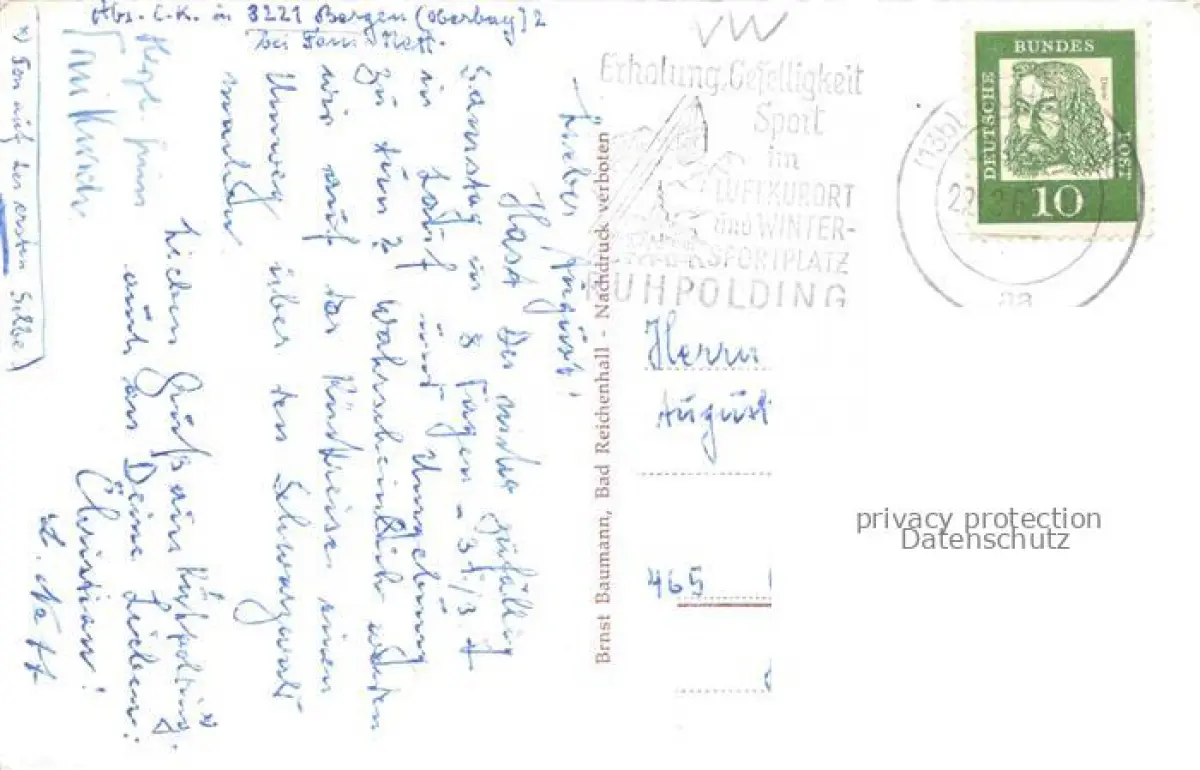 Abs. C.K. in 8221 Bergen (Oberbay) 2
bei Fam. Hett.
VW
Erholung, Geselligkeit
Sport
im
LUFTKURORT
und WINTER-
SPORTPLATZ
RUHPOLDING
(13b)
22
aa
DEUTSCHE
BUNDES
POST
Dürer
10
Lieber August!
Hast Du nicht zufällig
Samstag in 8 Tagen - 31./3. -
in Lohf und Umgebung
zu tun? Wahrscheinlich werden
wir auf der Rückreise einen
Umweg über den Schwarzwald
machen.
Lieben Gruß aus Ruhpolding *)
auch an Deine Lieben.
Christian!
*) Ton auf der ersten Silbe)
Ernst Baumann, Bad Reichenhall - Nachdruck verboten
Herrn
August
465
privacy protection
Datenschutz